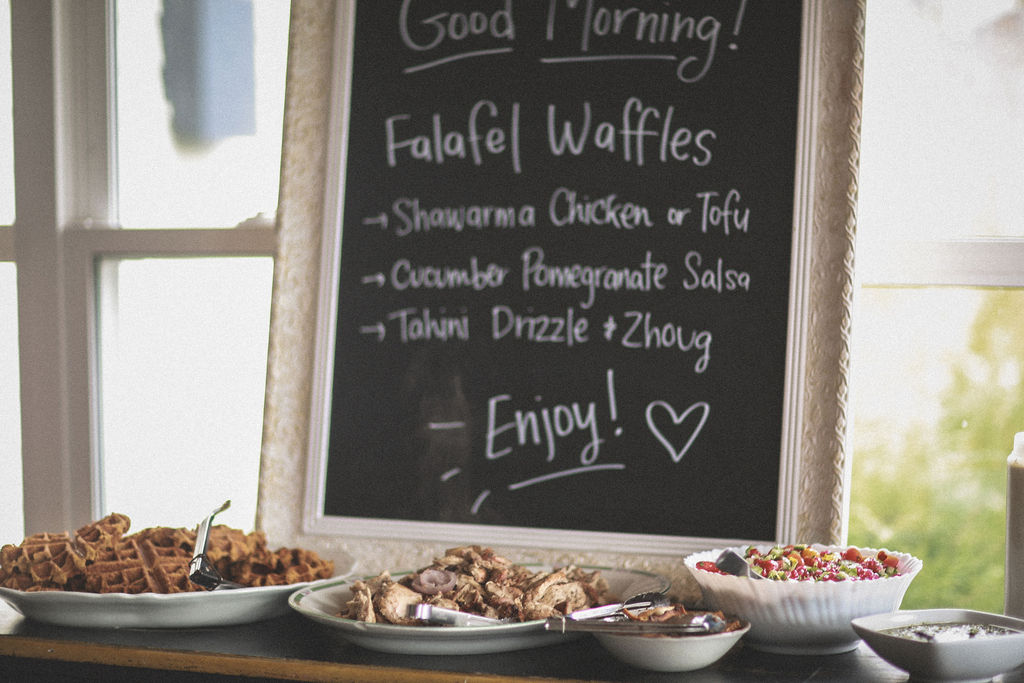 Good Morning!
Falafel Waffles
→ Shawarma Chicken or Tofu
→ Cucumber Pomegranate Salsa
→ Tahini Drizzle + Zhoug
Enjoy! ♡